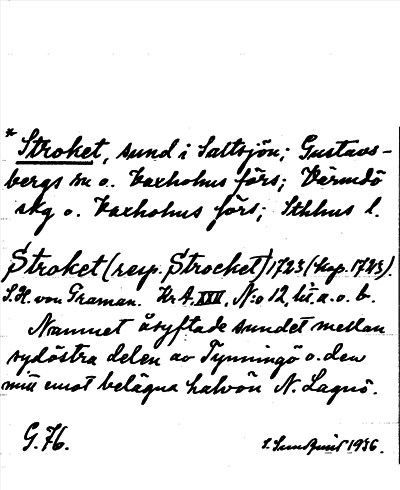 * Stroket, sund i Saltsjön; Gustavs-
bergs sn o. Vaxholms förs; Värmdö
skg o. Vaxholms förs; Sthlms l.
Stroket (resp. Strocket) 1723 (kop. 1723).
S.H. von Graman. Kr A. XIII, N:o 12, lit. a. o. b.
Namnet åsyftade sundet mellan
sydöstra delen av Tynningö o. den
mitt emot belägna halvön N. Lagnö.
G. 76.
1936.